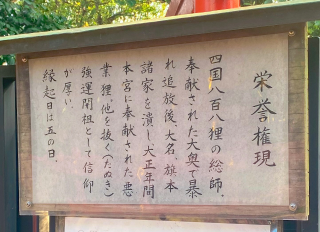 栄誉権現
四国八百八狸の総師、
奉献された大奥で暴
れ追放後、大名、旗本
諸家を潰し大正年間
本宮に奉献された悪
業狸。他を抜く(たぬき)
強運開祖として信仰
が厚い。
縁起日は五の日。